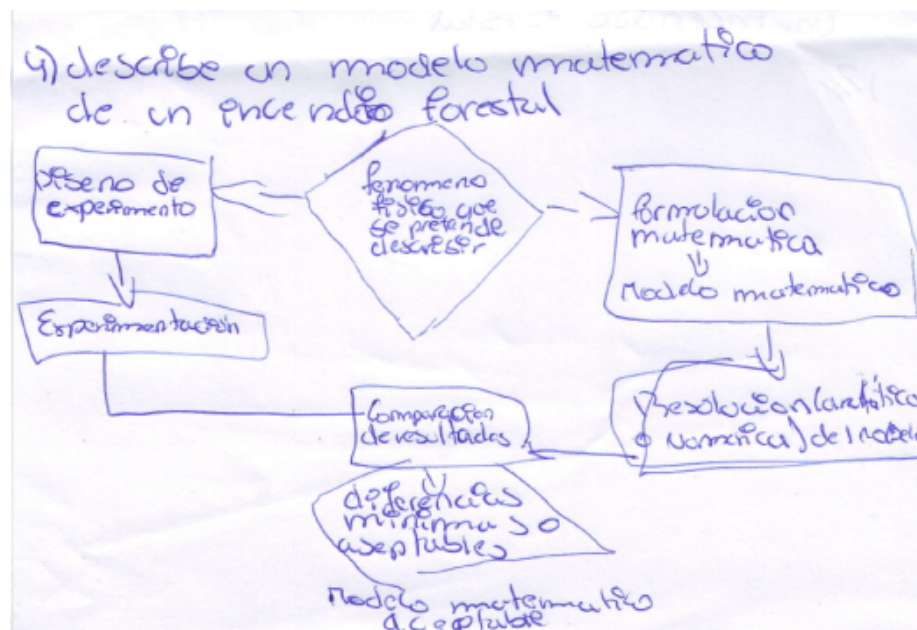 4) describe un modelo matematico
de un incendio forestal
Diseno de
experimento
fenomeno
fisico que
se pretende
describir
formulacion
matematica
Modelo matematico
Experimentación
Comparacion
de resultados
Resolucion (analitico
o numerica) del modelo
diferéncias
minimas o
aseptables
Modelo matematico
aceptable